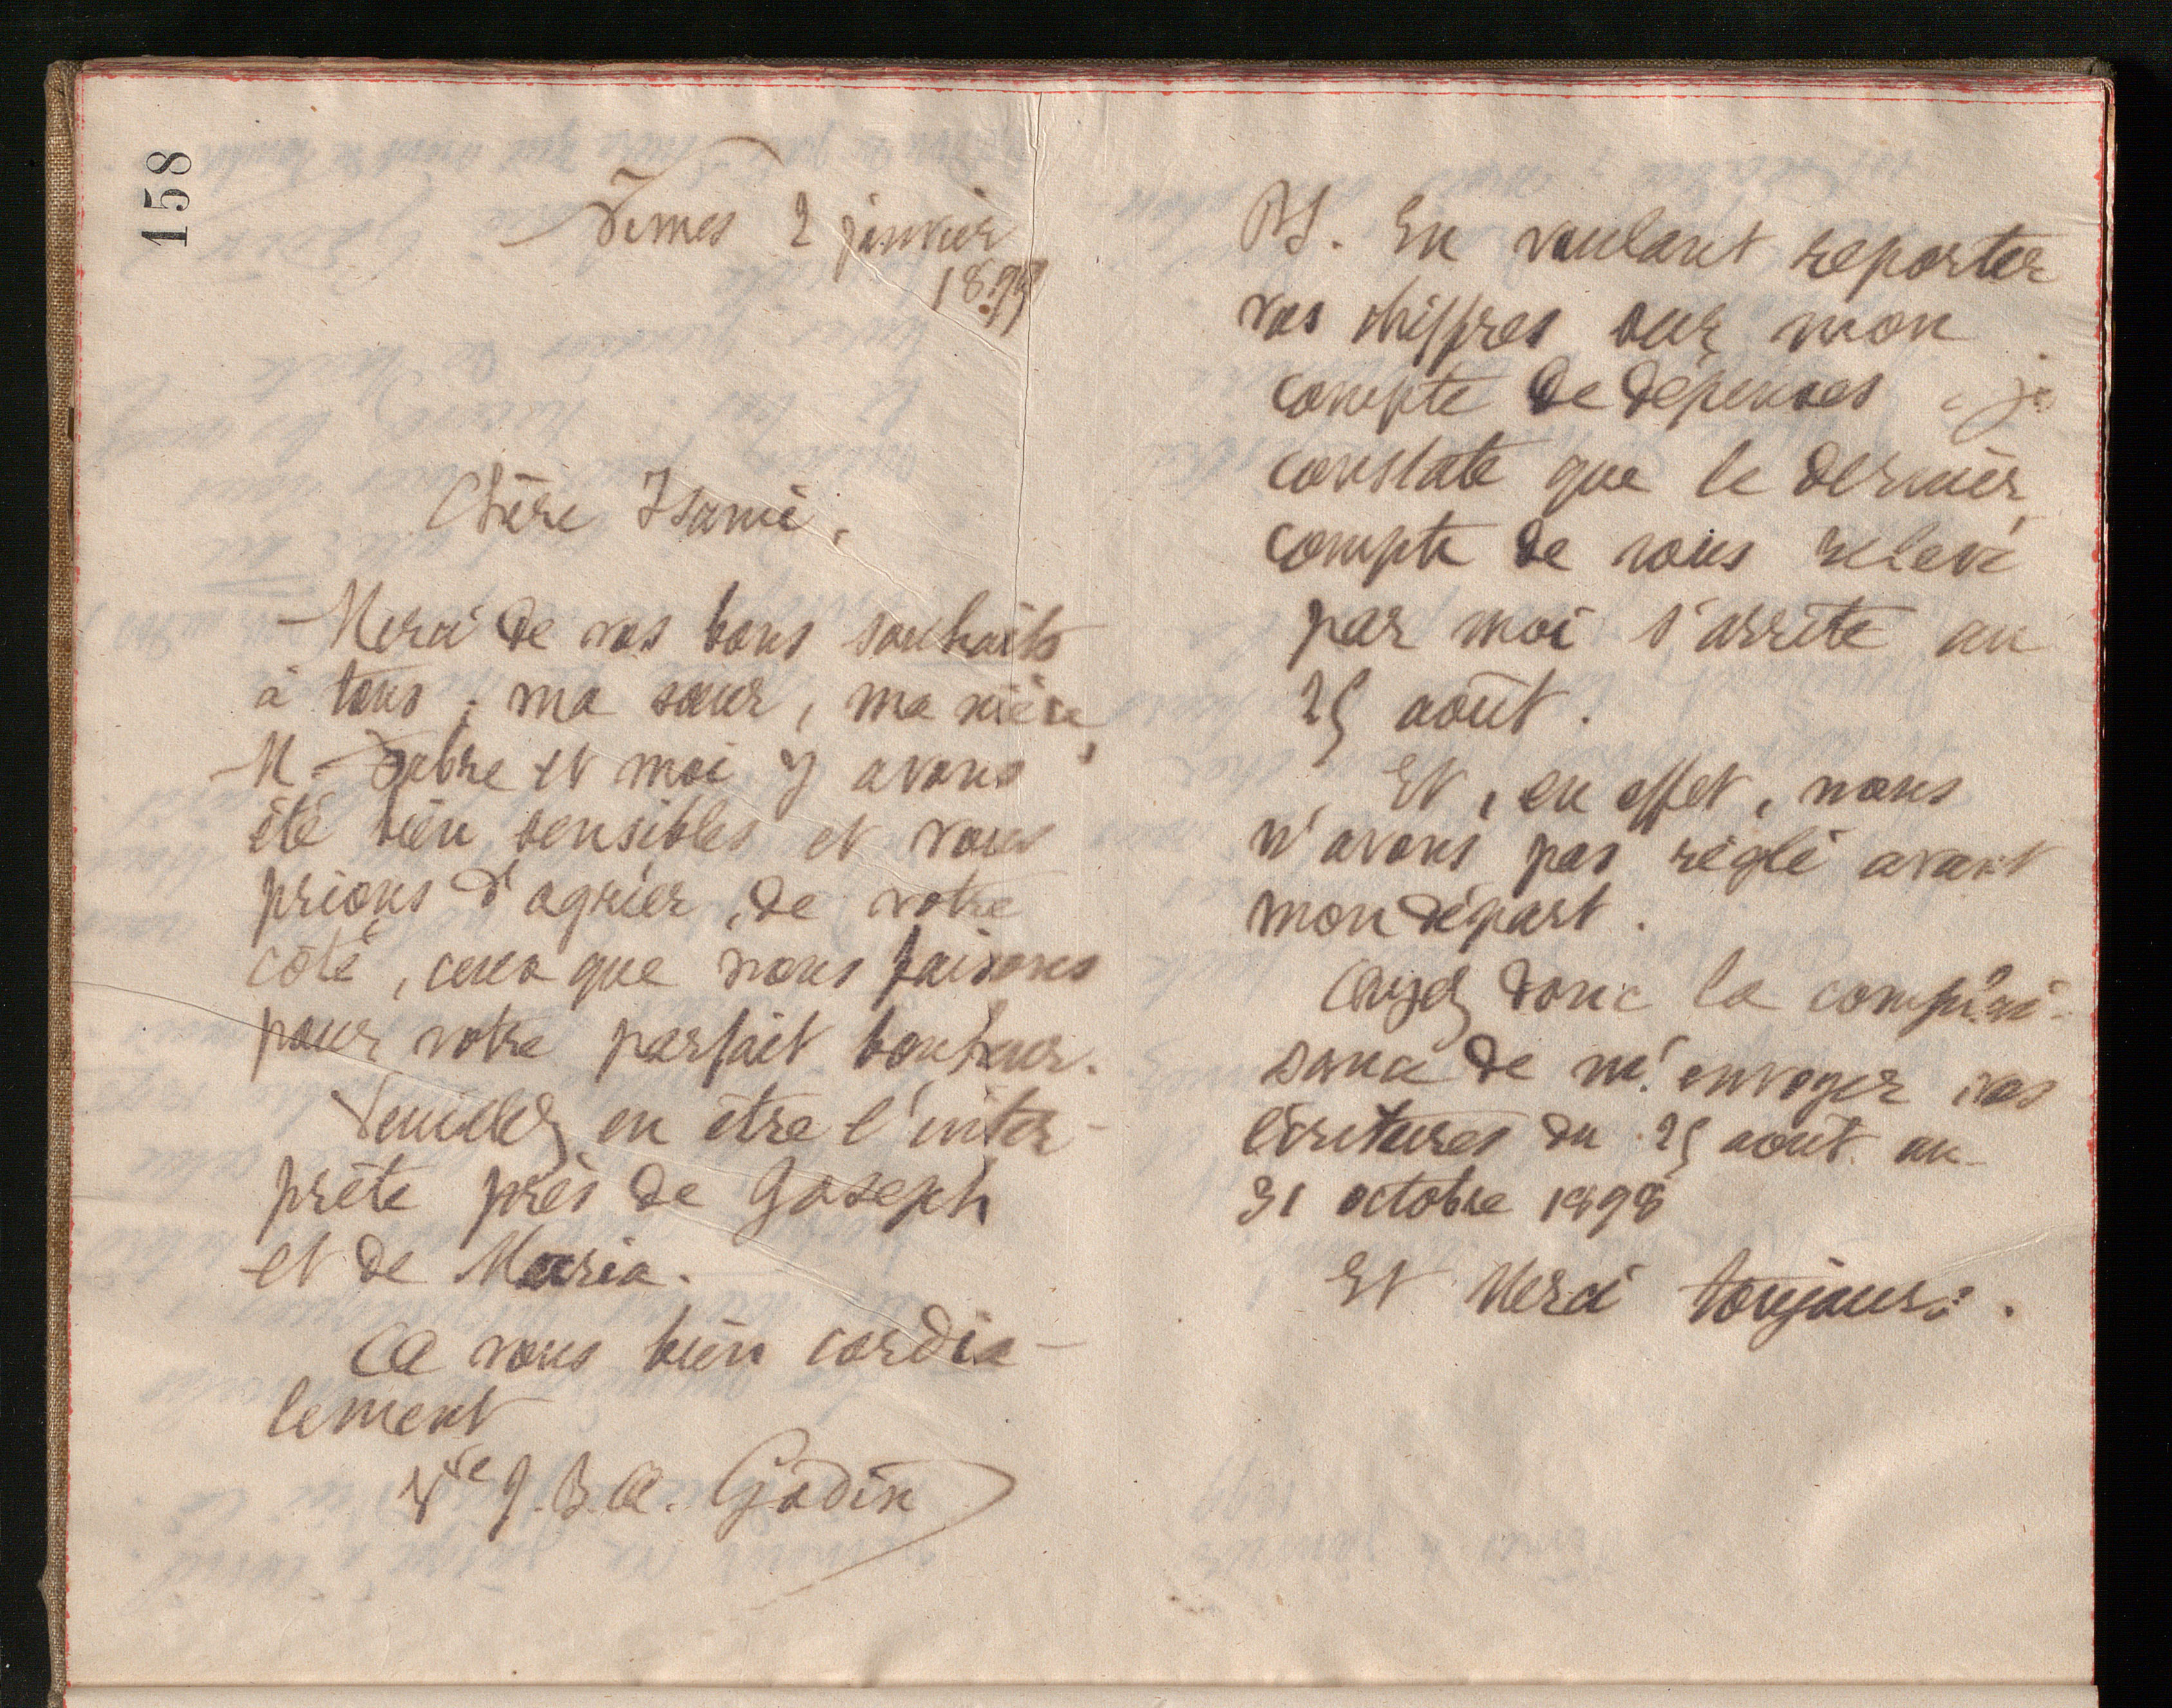 158
Nîmes 2 janvier
1899
Chère Isanie,
Merci de vos bons souhaits
à tous, ma sœur, ma nièce,
M. Fabre et moi y avons
été bien sensibles et vous
prions d'agréer, de votre
côté, ceux que nous faisons
pour votre parfait bonheur.
Veuillez en être l'inter-
prète près de Joseph
et de Maria.
A vous bien cordia-
lement
Vve J. B. A. Godin
PS. En voulant reporter
vos chiffres sur mon
compte de dépenses je
constate que le dernier
compte de vous relevé
par moi s'arrête au
25 août.
Et, en effet, nous
n'avons pas réglé avant
mon départ.
Ayez donc la complai-
sance de m'envoyer vos
écritures du 25 août au
31 octobre 1898
Et Merci toujours.